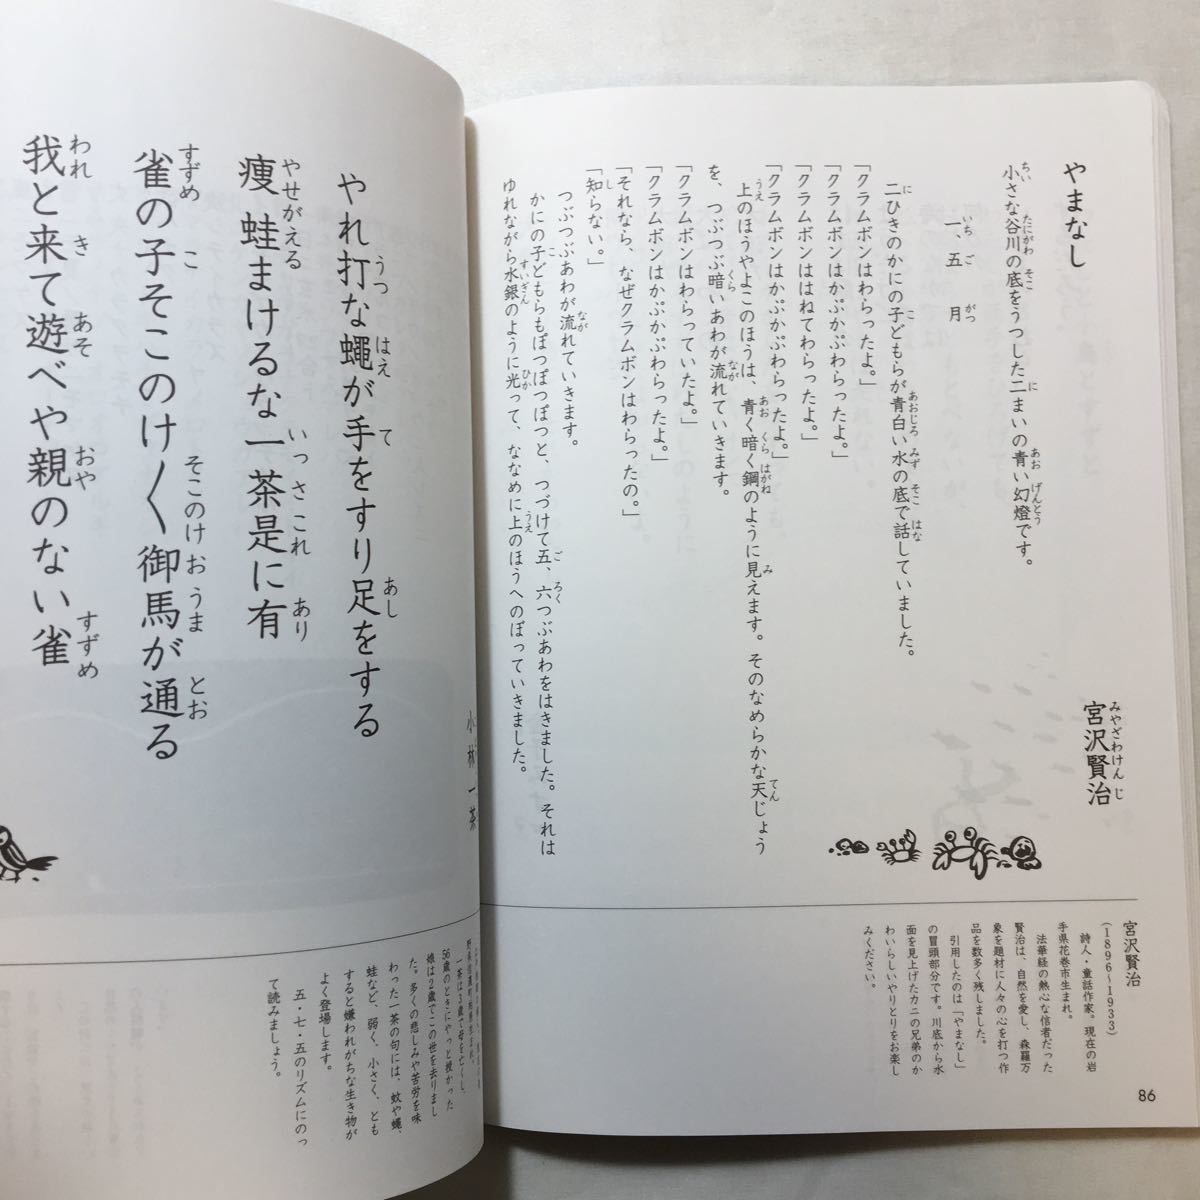 やまなし
宮沢賢治
小さな谷川の底をうつした二まいの青い幻燈です。
一、五月
二ひきのかにの子どもらが青白い水の底で話していました。
「クラムボンはわらったよ。」
「クラムボンはかぷかぷわらったよ。」
「クラムボンははねてわらったよ。」
「クラムボンはかぷかぷわらったよ。」
上のほうやよこのほうは、青く暗く鋼のように見えます。そのなめらかな天じょう
を、つぶつぶ暗いあわが流れていきます。
「クラムボンはわらっていたよ。」
「クラムボンはかぷかぷわらったよ。」
「それなら、なぜクラムボンはわらったの。」
「知らない。」
つぶつぶあわが流れていきます。
かにの子どもらもぽつぽつぽつと、つづけて五、六つぶあわをはきました。それは
ゆれながら水銀のように光って、ななめに上のほうへのぼっていきました。
宮沢賢治
(1896〜1933)
詩人・童話作家。現在の岩
手県花巻市生まれ。
法華経の熱心な信者だった
賢治は、自然を愛し、森羅万
象を題材に人々の心を打つ作
品を数多く残しました。
引用したのは「やまなし」
の冒頭部分です。川底から水
面を見上げたカニの兄弟のか
わいらしいやりとりをお楽し
みください。
86
小林一茶
やれ打な蠅が手をすり足をする
痩蛙まけるな一茶是に有
雀の子そこのけ〱御馬が通る
我と来て遊べや親のない雀
一茶は3歳で母を亡くし、
56歳のときにやっと授かった
娘は2歳でこの世を去りまし
た。多くの悲しみや苦労を味
わった一茶の句には、蚊や蠅、
蛙など、弱く、小さく、とも
すると嫌われがちな生き物が
よく登場します。
五・七・五のリズムにのっ
て読みましょう。